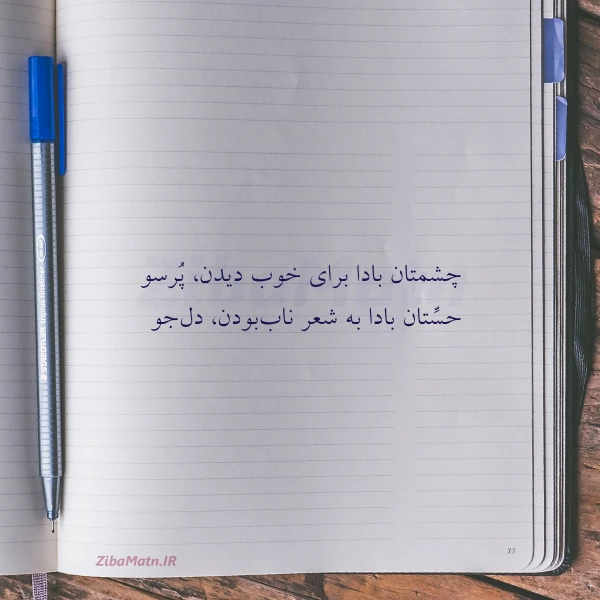 چشمتان بادا برای خوب دیدن، پُرسو
حسِّتان بادا به شعر ناب‌بودن، دل‌جو
ZibaMatn.IR
77
STAEDTLER triplus fineliner